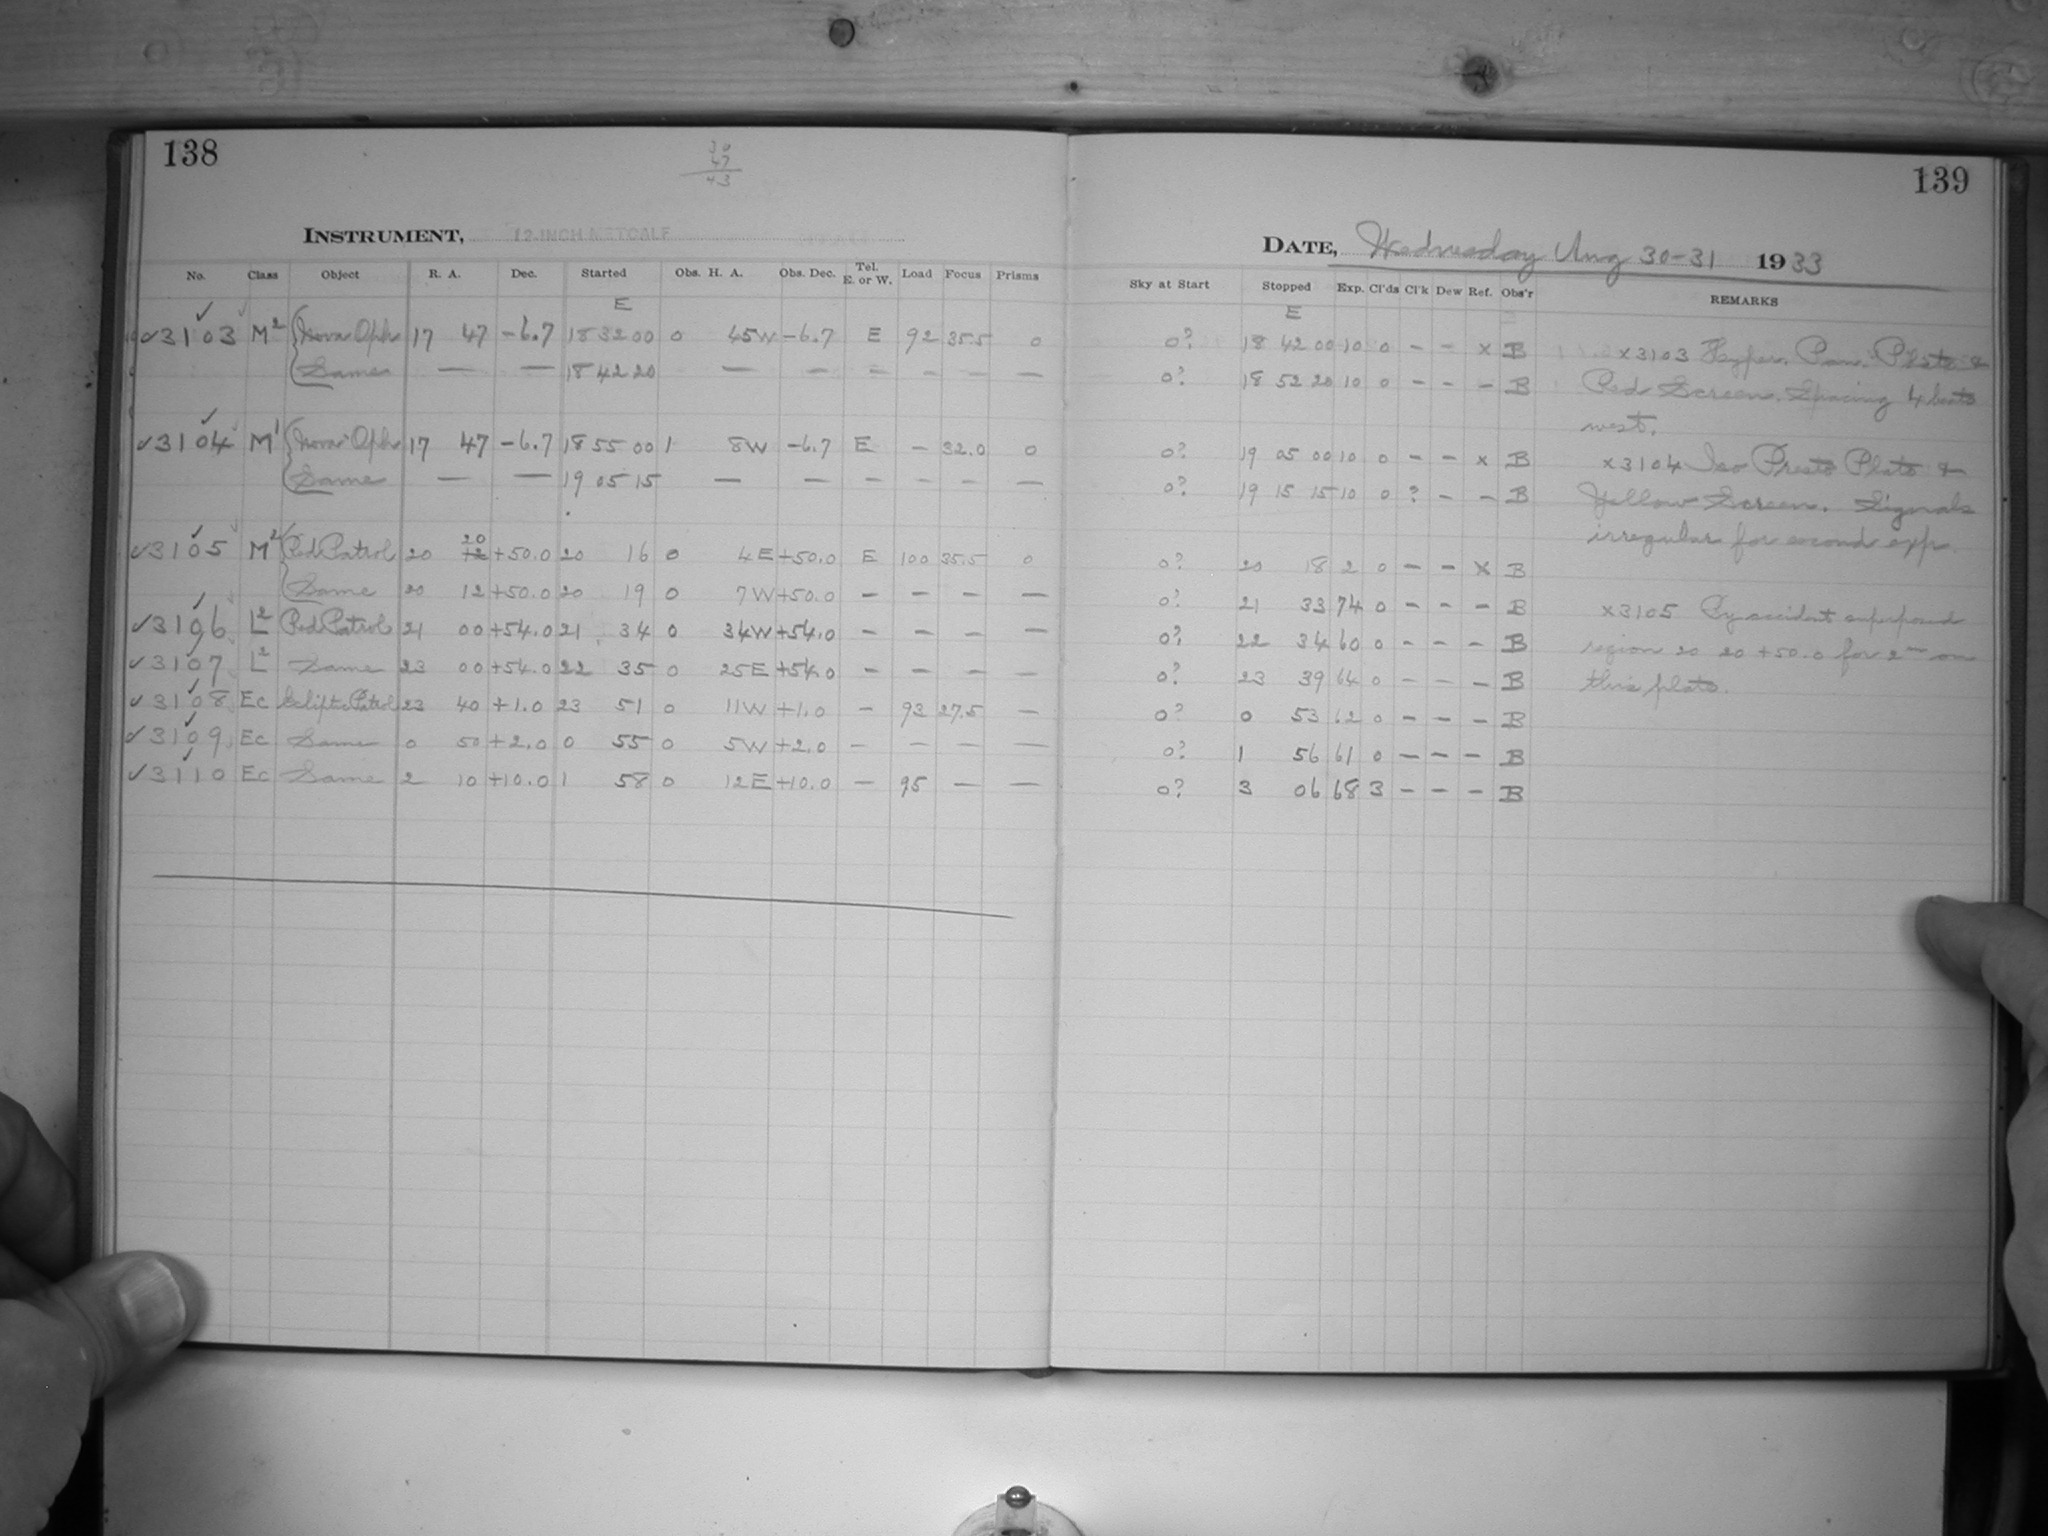 138
30
47
43
INSTRUMENT, 12-INCH METCALF
No. Class Object R. A. Dec. Started Obs. H. A. Obs. Dec. Tel. E. or W. Load Focus Prisms
E
✓3103 M2 Nova Oph 17 47 -6.7 18 32 00 0 45W -6.7 E 92 35.5 0
Same — — 18 42 20 — — — — — —
✓3104 M1 Nova Oph 17 47 -6.7 18 55 00 1 8W -6.7 E — 32.0 0
Same — — 19 05 15 — — — — — —
20
✓3105 M2 Red Patrol 20 12 +50.0 20 16 0 4E +50.0 E 100 35.5 0
Same 20 12 +50.0 20 19 0 7W +50.0 — — — —
✓3106 L2 Red Patrol 21 00 +54.0 21 34 0 34W +54.0 — — — —
✓3107 L2 Same 23 00 +54.0 22 35 0 25E +54.0 — — — —
✓3108 Ec Ecliptic Patrol 23 40 +1.0 23 51 0 11W +1.0 — 93 27.5 —
✓3109 Ec Same 0 50 +2.0 0 55 0 5W +2.0 — — — —
✓3110 Ec Same 2 10 +10.0 1 58 0 12E +10.0 — 95 — —
139
DATE, Wednesday Aug 30-31 1933
Sky at Start Stopped Exp. Cl'ds Cl'k Dew Ref. Obs'r REMARKS
E
0? 18 42 00 10 0 - - x B
0? 18 52 20 10 0 - - - B
0? 19 05 00 10 0 - - x B
0? 19 15 15 10 0 ? - - B
0? 20 18 2 0 - - x B
0? 21 33 74 0 - - - B
0? 22 34 60 0 - - - B
0? 23 39 64 0 - - - B
0? 0 53 62 0 - - - B
0? 1 56 61 0 - - - B
0? 3 06 68 3 - - - B
x3103 Hyper. Pan. Plate &
Red Screen. Spacing 4 beats
west.
x3104 Iso Presto Plate &
Yellow Screen. Signals
irregular for second exp.
x3105 By accident superposed
region 20 20 +50.0 for 2m on
this plate.